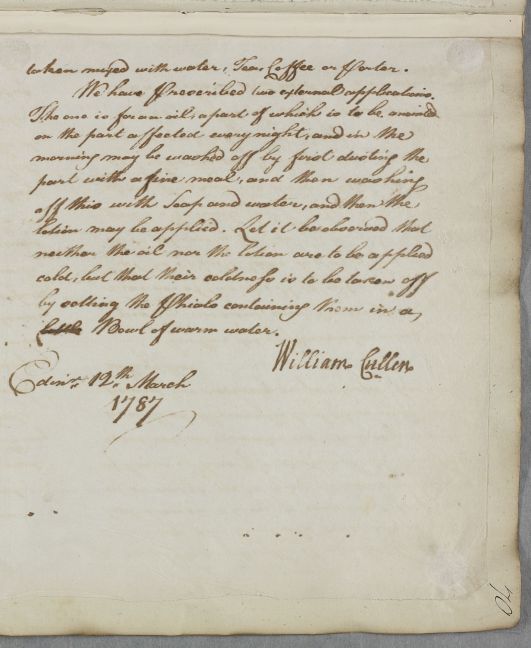 taken mixed with water, Tea, Coffee or Porter.
We have Prescribed two external applications.
The one is for an oil, a part of which is to be anointed
on the part affected every night, and in the
morning may be washed off by first dusting the
part with a fine meal, and then washing
off this with Soap and water, and then the
lotion may be applied. Let it be observed that
neither the oil nor the lotion are to be applied
cold, but that their coldness is to be taken off
by setting the Phials containing them in a
Bowl of warm water.
William Cullen
Edinr. 12th March
1787